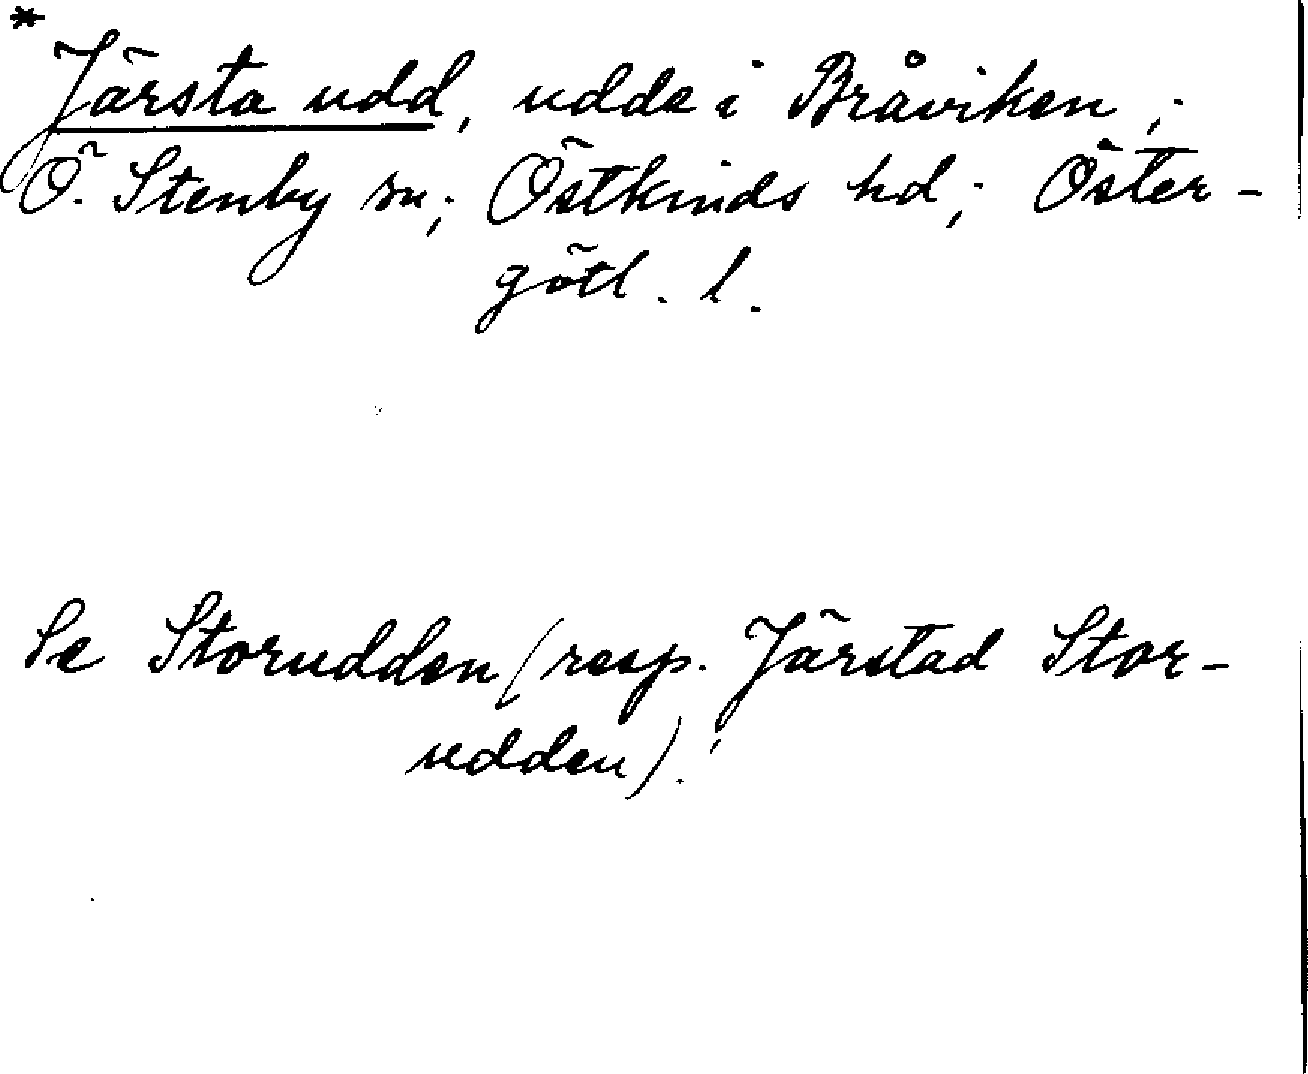 * Järsta udd, udde i Bråviken,;
Ö. Stenby sn; Östkinds hd; Öster-
götl. l.
Se Storudden (resp. Järstad Stor-
udden).!